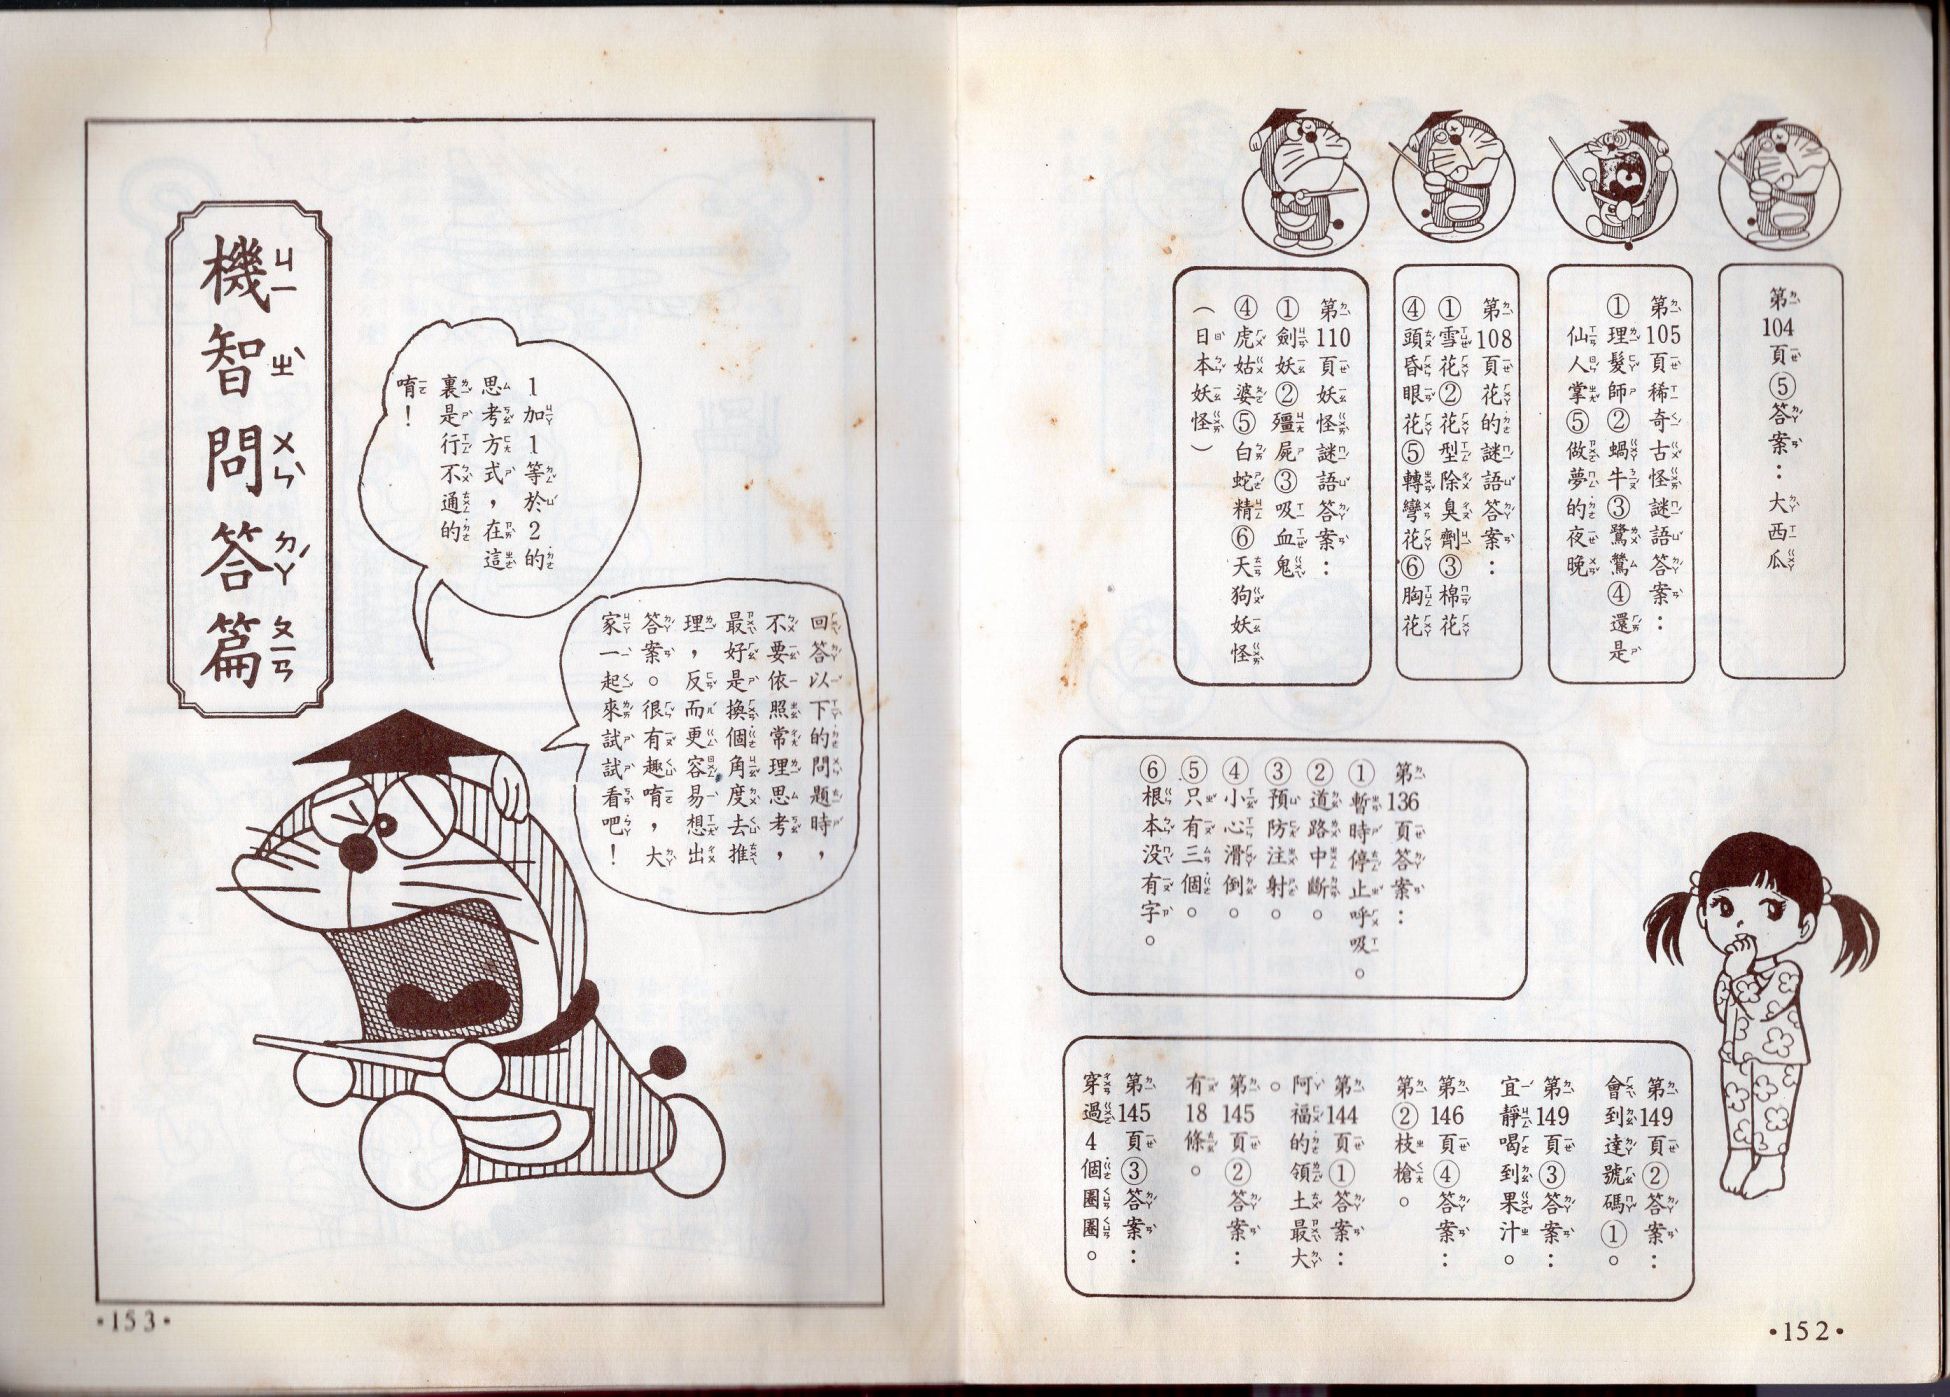 第104頁⑤答案：大西瓜
第105頁稀奇古怪謎語答案：
①理髮師②蝸牛③鷺鷥④還是
仙人掌⑤做夢的夜晚
第108頁花的謎語答案：
①雪花②花型除臭劑③棉花
④頭昏眼花⑤轉彎花⑥胸花
第110頁妖怪謎語答案：
①劍妖②殭屍③吸血鬼
④虎姑婆⑤白蛇精⑥天狗妖怪
（日本妖怪）
第136頁答案：
①暫時停止呼吸。
②道路中斷。
③預防注射。
④小心滑倒。
⑤只有三個。
⑥根本沒有字。
第149頁②答案：
會到達號碼①。
第149頁③答案：
宜靜喝到果汁。
第146頁④答案：
第②枝槍。
第144頁①答案：
阿福的領土最大
。
第145頁②答案：
有18條。
第145頁③答案：
穿過4個圈圈。
•152•
機智問答篇
1加1等於2的
思考方式，在這
裏是行不通的
唷！
回答以下的問題時，
不要依照常理思考，
最好是換個角度去推
理，反而更容易想出
答案。很有趣唷，大
家一起來試試看吧！
•153•